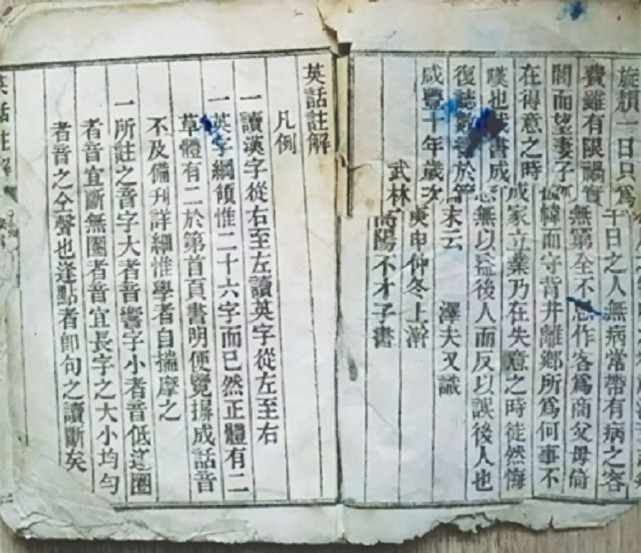 旋頹一日只爲千日之人無病常帶有病之容
費雖有限禍實無窮全不思作客爲商父母倚
閭而望妻子緯而守背井離鄉所爲何事不
在得意之時成家立業乃在失意之時徒然悔
嘆也書成無以益後人而反以誤後人也
復誌數於末云 澤夫又識
咸豐十年歲次庚申仲冬上澣
武林高陽不才子書
英話註解
凡例
一讀漢字從右至左讀英字從左至右
一英字綱領惟二十六字而已然正體有二
草體有二於第首頁書明便覽摒成話音
不及備刋詳細惟學者自揣摩之
一所註之音字大者音響字小者音低逢圈
者音宜斷無圈者音宜長字之大小均勻
者音之全聲也逢點者卽句之讀斷矣
英話註解